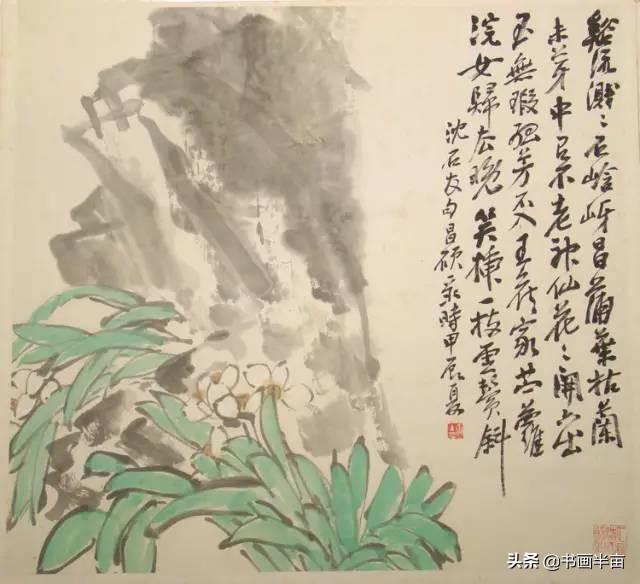 谿流濺〻石岈昌蒲葉枯蘭
未芽中有不老神仙花〻開出
玉無瑕孤芳不入王侯家苎蘿
浣女歸去晚笑插一枝雲鬢斜
沈石友句昌碩录時甲辰夏
头条 @书画半亩